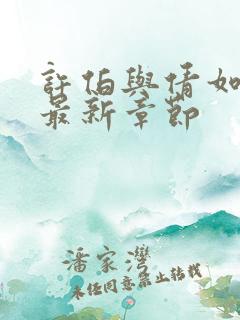 許佰與情如
最新章節
潘家灣
未經同意禁止轉載